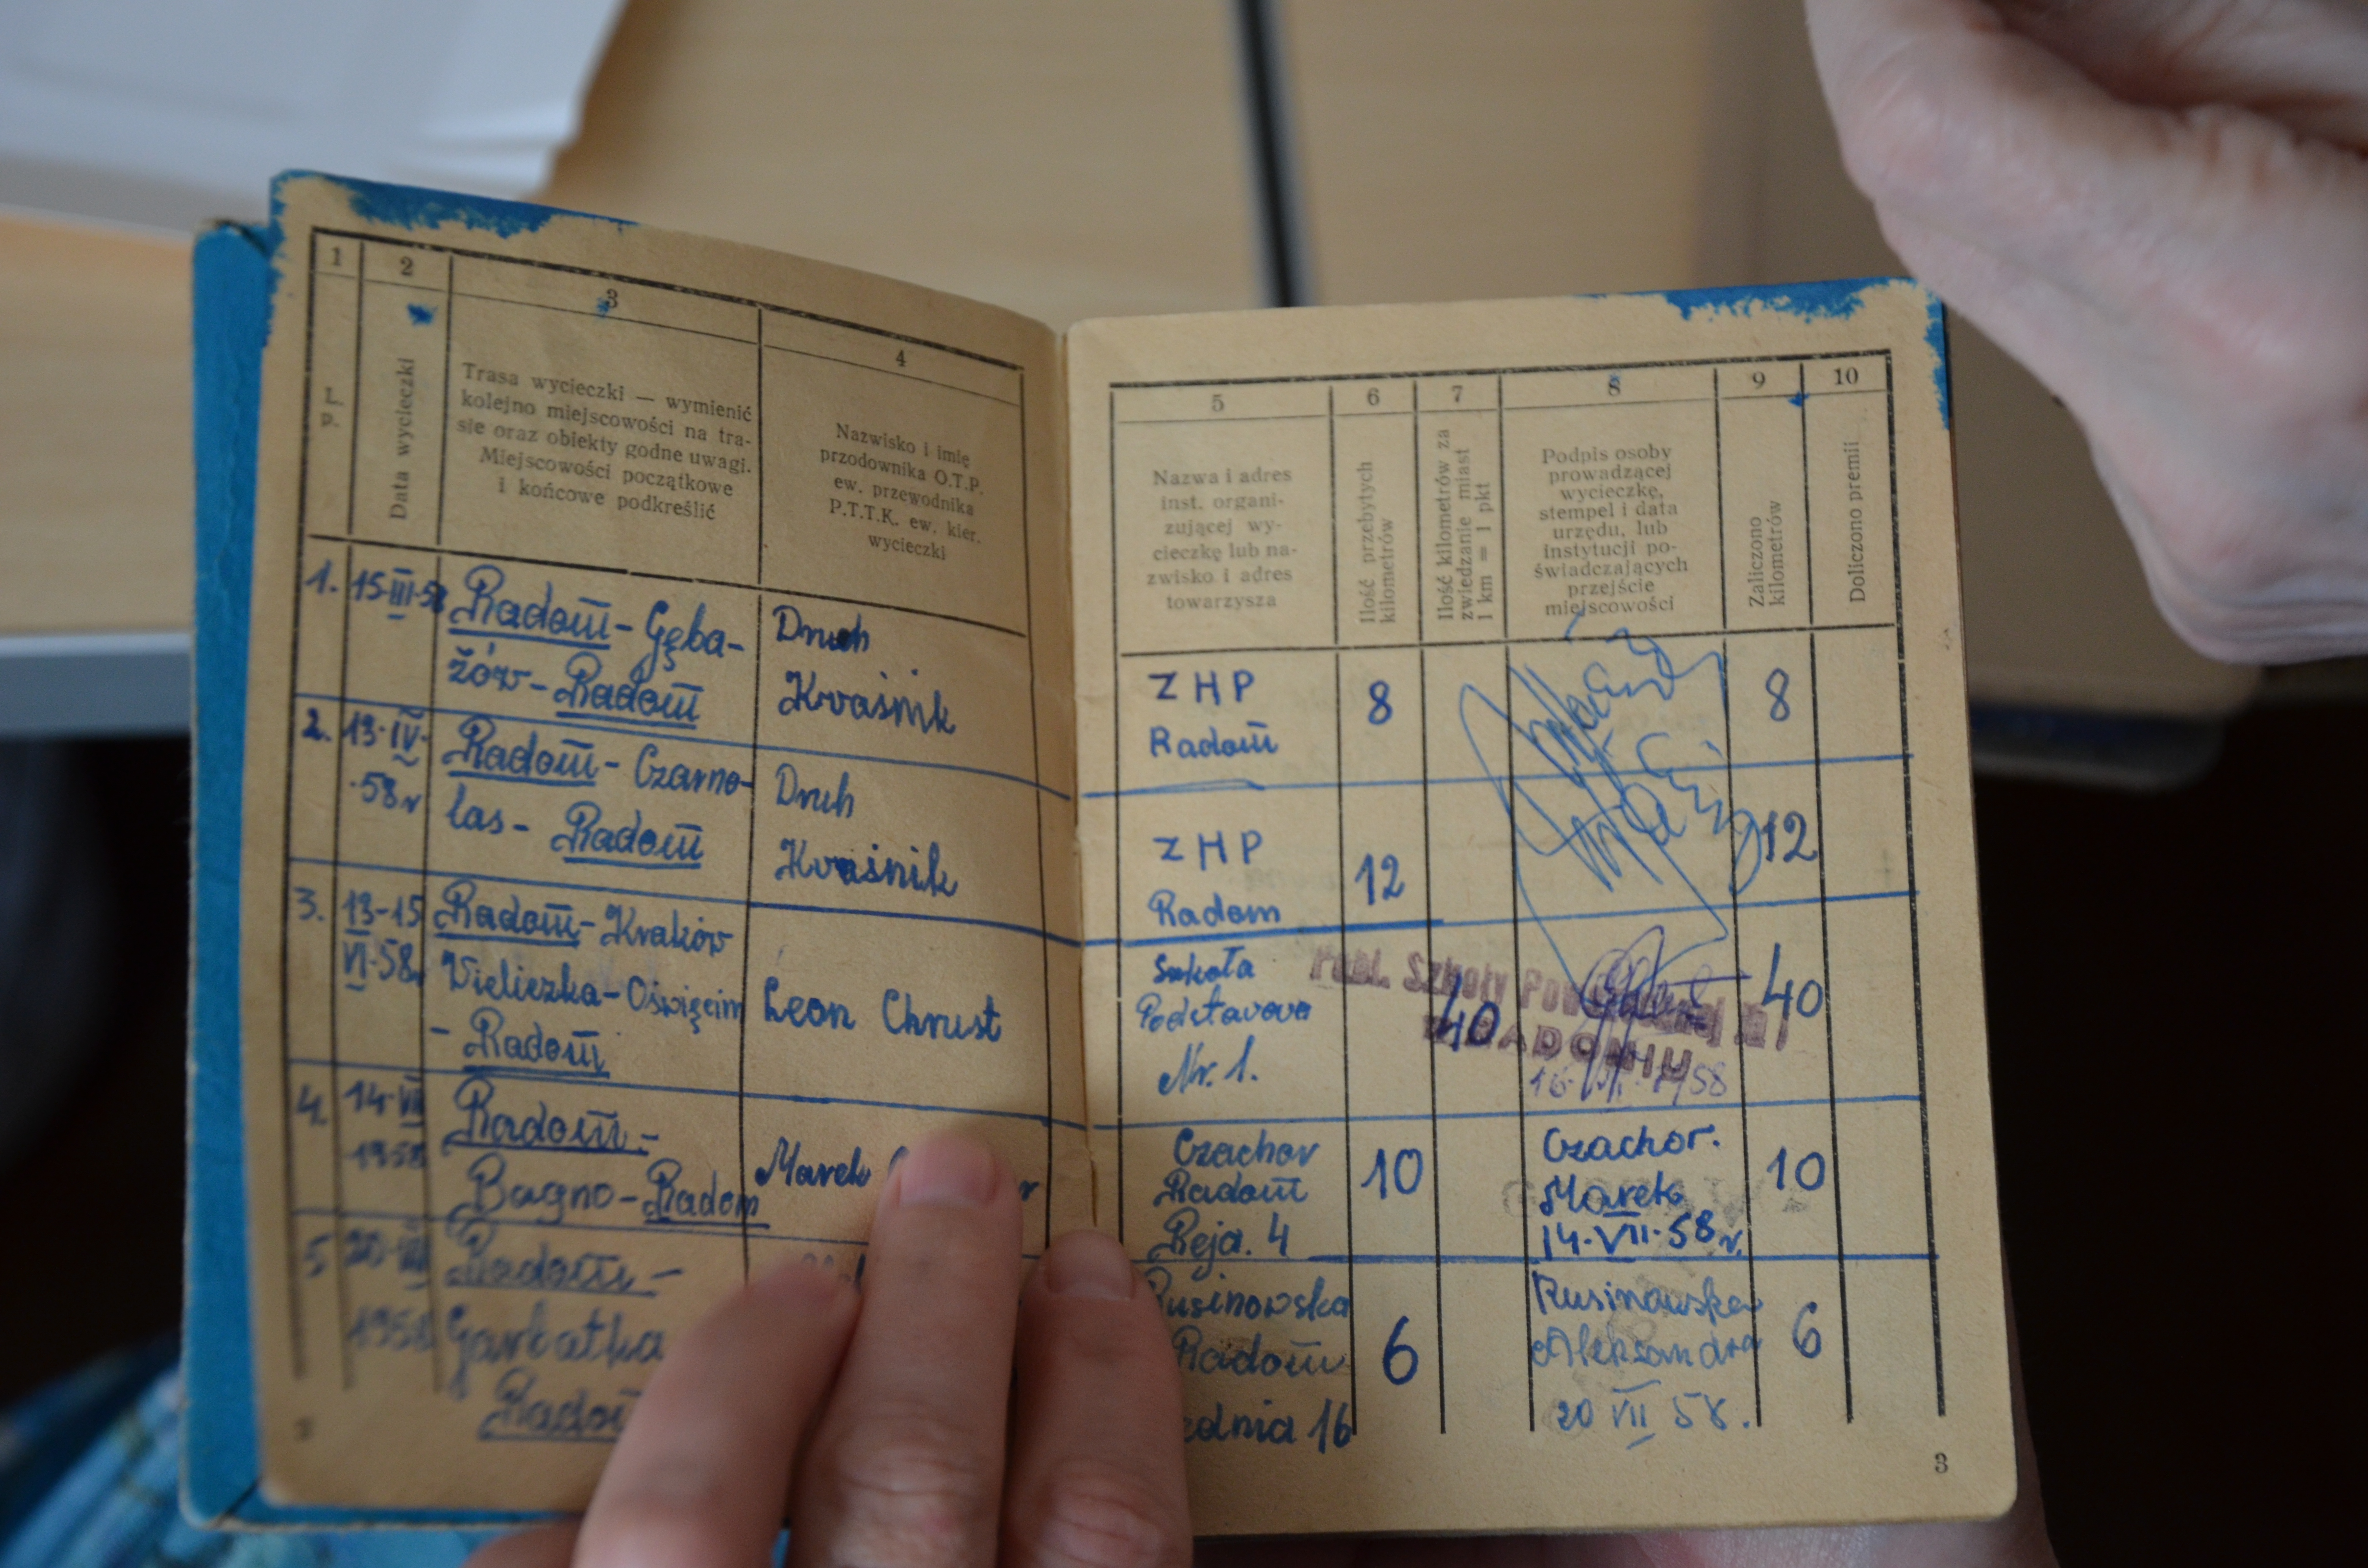 1
2
3
4
L.
p.
Data wycieczki
Trasa wycieczki — wymienić
kolejno miejscowości na tra-
sie oraz obiekty godne uwagi.
Miejscowości początkowe
i końcowe podkreślić
Nazwisko i imię
przodownika O.T.P.
ew. przewodnika
P.T.T.K. ew. kier.
wycieczki
1. 15-III-58 Radom - Gęba-
żów - Radom
Druh
Kraśnik
2. 13-IV-
-58r
Radom - Czarno-
las - Radom
Druh
Kraśnik
3. 13-15
VI-58r
Radom - Kraków
Wieliczka - Oświęcim
- Radom
Leon Chrust
4. 14-VII
1958
Radom -
Bagno - Radom
Marek
5 20-VII
1958
Radom -
Garbatka
5
6
7
8
9
10
Nazwa i adres
inst. organi-
zującej wy-
cieczkę lub na-
zwisko i adres
towarzysza
Ilość przebytych
kilometrów
Ilość kilometrów za
zwiedzanie miast
1 km = 1 pkt
Podpis osoby
prowadzącej
wycieczkę,
stempel i data
urzędu, lub
instytucji po-
świadczających
przejście
miejscowości
Zaliczono
kilometrów
Doliczono premii
Z H P
Radom
8
8
Z H P
Radom
12
12
Szkoła
Podstawowa
Nr. 1.
40
40
Publ. Szkoły Powszechnej
W RADOMIU
Czachor
Radom
Reja. 4
10
Czachor.
Marek
14-VII-58r.
10
Rusinowska
Radom
16
6
Rusinowska
Aleksandra
20 VII 58.
6
3